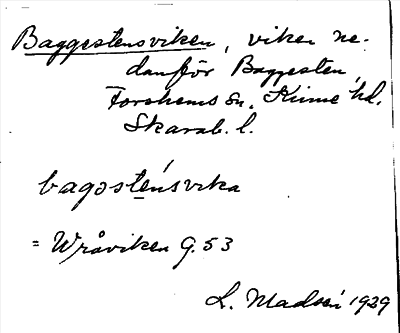 Baggestensviken, viken ne-
danför Baggesten,
Forshems sn. Kinne hd.
Skarab. l.
bagəsténsvika
= Wråviken G. 53
L. Madsén 1929